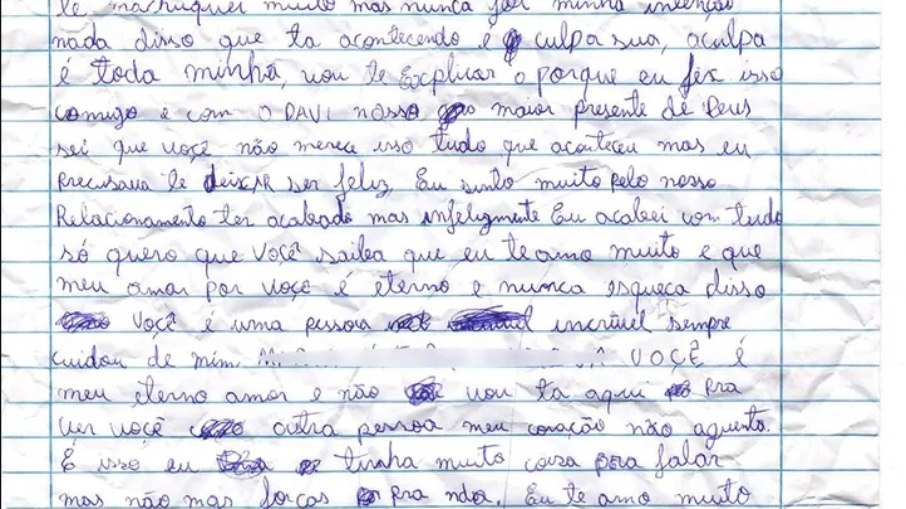 te machuquei muito mas nunca foi minha intenção
nada disso que ta acontecendo é culpa sua, a culpa
é toda minha, vou te Explicar o porque eu fiz isso
comigo e com O DAVI nosso maior presente de Deus
sei que você não merece isso tudo que aconteceu mas eu
precisava te deixAR ser feliz, Eu sinto muito pelo nosso
Relacionamento ter acabado mas infelizmente Eu acabei com tudo
só quero que Você saiba que eu te amo muito e que
meu amor por você é eterno e nunca esqueça disso
Você é uma pessoa incrível sempre
cuidou de mim. VOÇÊ é
meu eterno amor e não vou ta aqui pra
ver você outra pessoa meu coração não aguenta.
É isso eu tinha muita coisa pra falar
mas não mas forças pra nda. Eu te amo muito